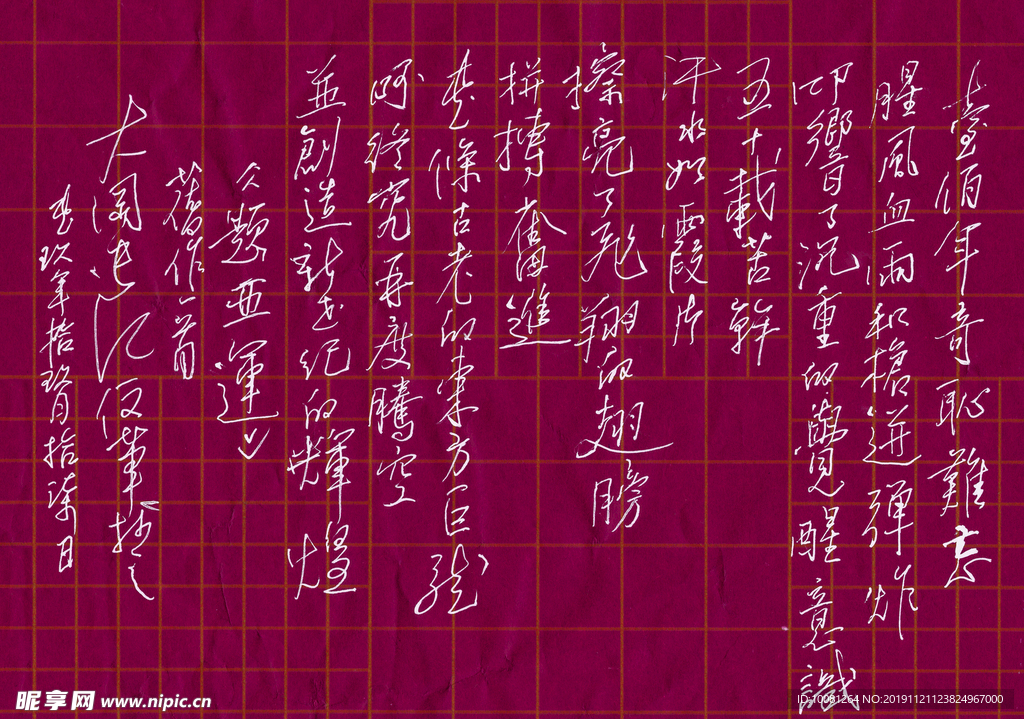 壹佰年奇恥難忘
腥風血雨和槍迸彈炸
叩響了沉重的覺醒意識
五十載苦幹
汗水如霞片
擦亮了飛翔的翅膀
拼搏奮進
這條古老的東方巨龍
啊終究再度騰空
並創造新世紀的輝煌
久題亞運
舊作一首
大閑
仅華抄之
玖年拾玖月拾柒日
昵享网 www.nipic.cn
ID:10081264 NO:20191121123824967000